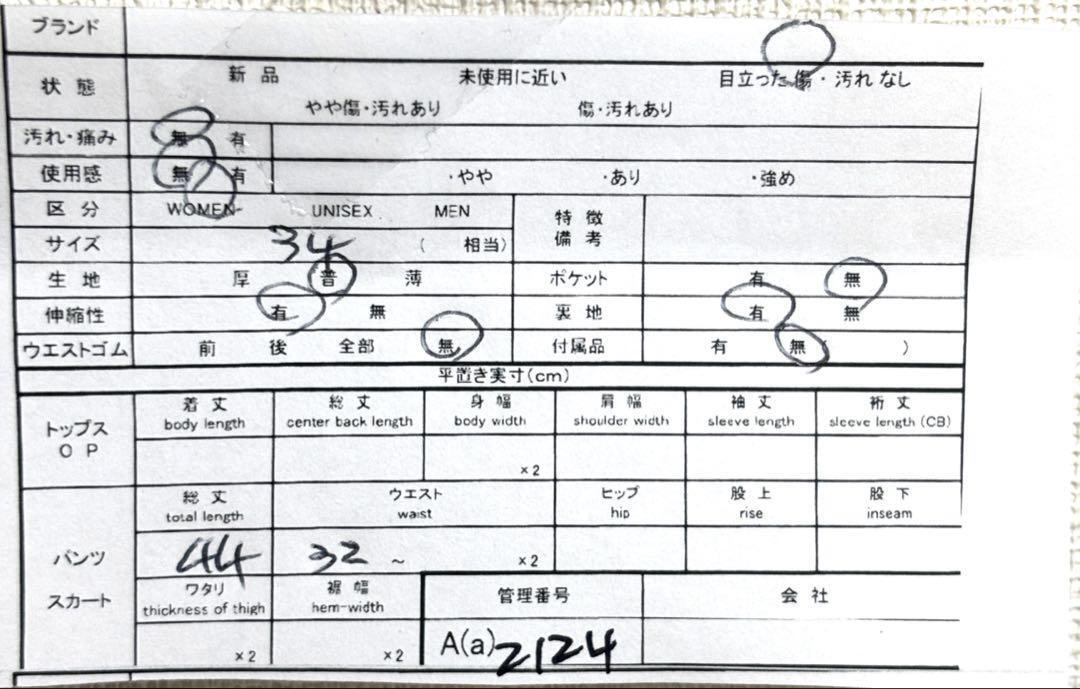 ブランド
状態 新品 未使用に近い 目立った傷・汚れなし
やや傷・汚れあり 傷・汚れあり
汚れ・痛み 無 有
使用感 無 有 ・やや ・あり ・強め
区分 WOMEN UNISEX MEN 特徴
備考
サイズ 34 ( 相当)
生地 厚 普 薄 ポケット 有 無
伸縮性 有 無 裏地 有 無
ウエストゴム 前 後 全部 無 付属品 有 無 ( )
平置き実寸(cm)
トップス
OP
着丈 総丈 身幅 肩幅 袖丈 裄丈
body length center back length body width shoulder width sleeve length sleeve length (CB)
×2
総丈 ウエスト ヒップ 股上 股下
total length waist hip rise inseam
パンツ 44 32 ~ ×2
スカート
ワタリ 裾幅 管理番号 会社
thickness of thigh hem-width
×2 ×2 A(a) 2124